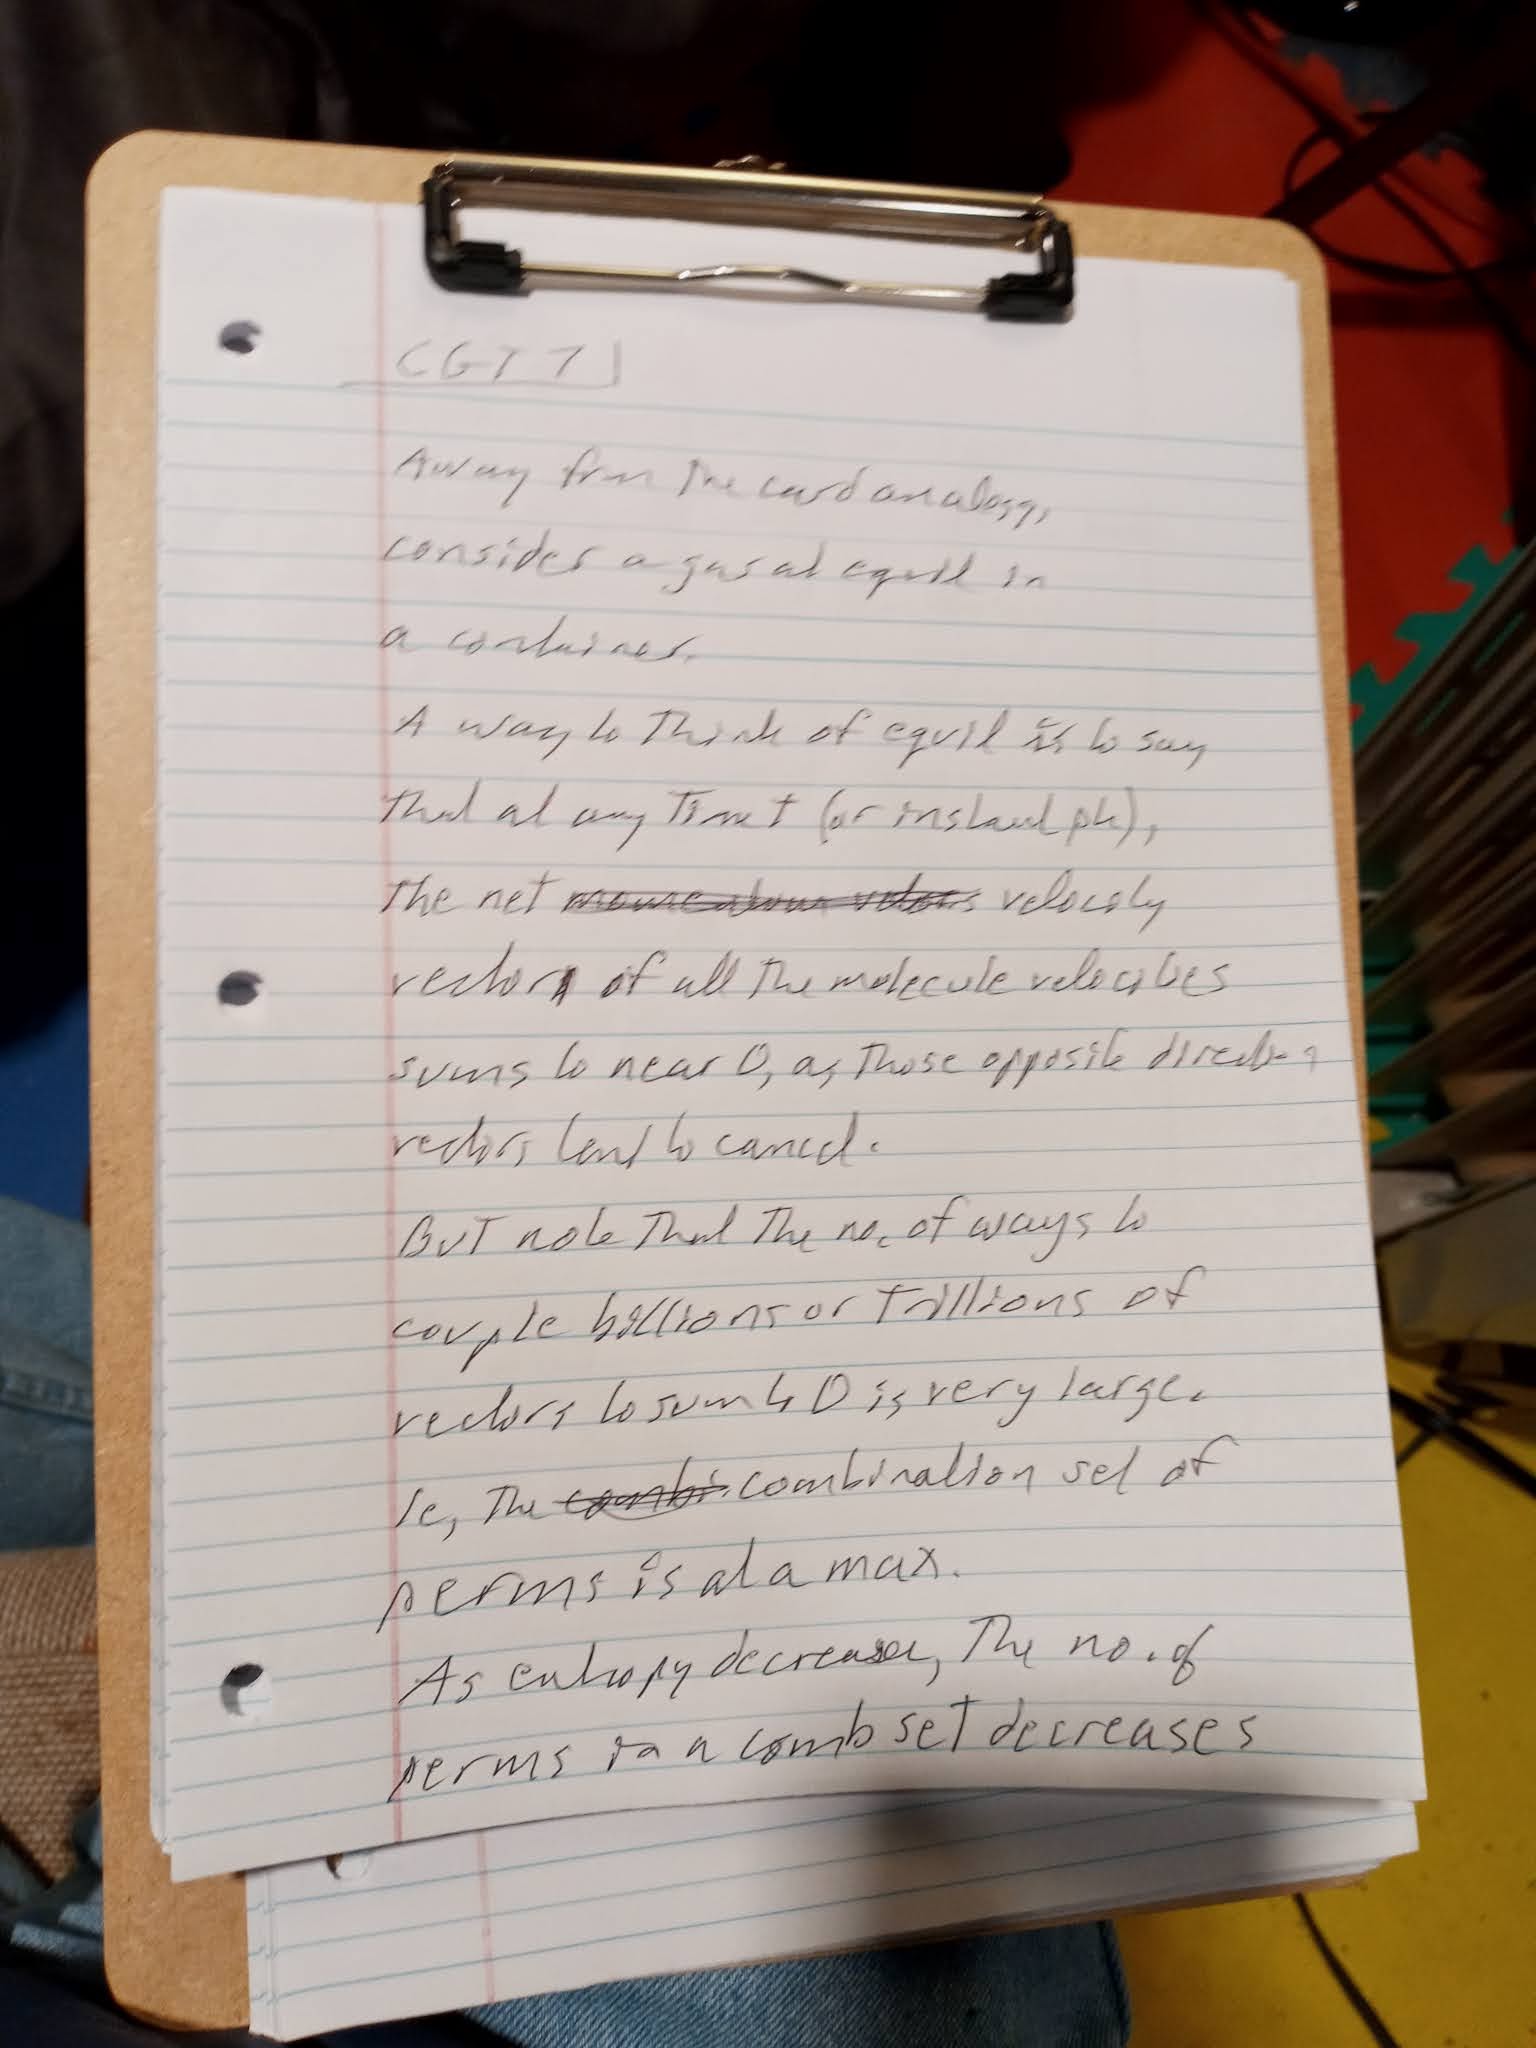 CGT 71
Away from the card analogy,
consider a gas at equil in
a container.
A way to think of equil is to say
that at any time t (or instant pt),
the net velocity
vector of all the molecule velocities
sums to near 0, as those opposite direction
vectors tend to cancel.
But note that the no. of ways to
couple billions or trillions of
vectors to sum to 0 is very large.
Ie, the combination set of
perms is at a max.
As entropy decreases, the no. of
perms in a comb set decreases